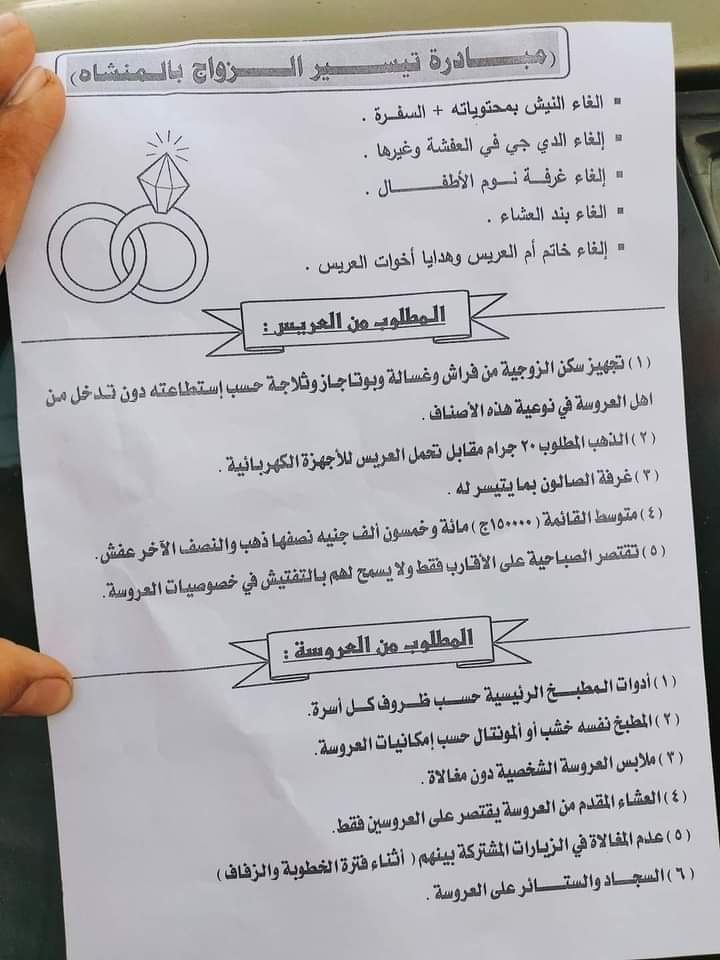 (مبادرة تيسير الزواج بالمنشاه)
▪ الغاء النيش بمحتوياته + السفرة .
▪ إلغاء الدي جي في العفشة وغيرها .
▪ إلغاء غرفة نوم الأطفال .
▪ الغاء بند العشاء .
▪ إلغاء خاتم أم العريس وهدايا أخوات العريس .
المطلوب من العريس :
(١) تجهيز سكن الزوجية من فراش وغسالة وبوتاجاز وثلاجة حسب إستطاعته دون تدخل من
اهل العروسة في نوعية هذه الأصناف .
(٢) الذهب المطلوب ٢٠ جرام مقابل تحمل العريس للأجهزة الكهربائية .
(٣) غرفة الصالون بما يتيسر له .
(٤) متوسط القائمة (١٥٠٠٠٠ج) مائة وخمسون ألف جنيه نصفها ذهب والنصف الآخر عفش.
(٥) تقتصر الصباحية على الأقارب فقط ولا يسمح لهم بالتفتيش في خصوصيات العروسة .
المطلوب من العروسة :
(١) أدوات المطبخ الرئيسية حسب ظروف كل أسرة.
(٢) المطبخ نفسه خشب أو ألمونتال حسب إمكانيات العروسة.
(٣) ملابس العروسة الشخصية دون مغالاة .
(٤) العشاء المقدم من العروسة يقتصر على العروسين فقط.
(٥) عدم المغالاة في الزيارات المشتركة بينهم ( أثناء فترة الخطوبة والزفاف )
(٦) السجاد والستائر على العروسة .